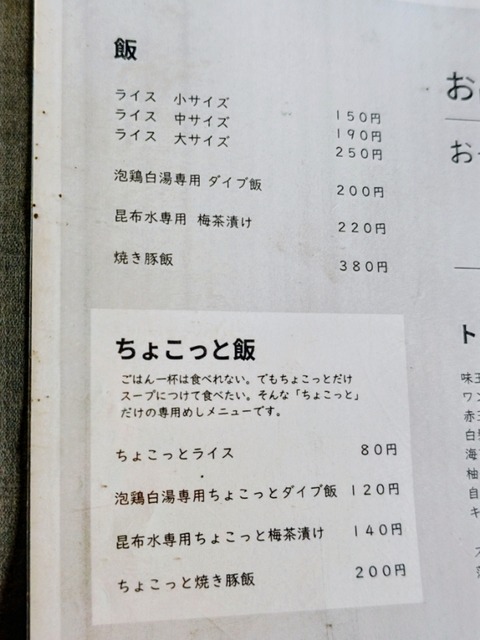 飯
ライス 小サイズ 150円
ライス 中サイズ 190円
ライス 大サイズ 250円
泡鶏白湯専用 ダイブ飯 200円
昆布水専用 梅茶漬け 220円
焼き豚飯 380円
ちょこっと飯
ごはん一杯は食べれない。でもちょこっとだけ
スープにつけて食べたい。そんな「ちょこっと」
だけの専用めしメニューです。
ちょこっとライス 80円
泡鶏白湯専用ちょこっとダイブ飯 120円
昆布水専用ちょこっと梅茶漬け 140円
ちょこっと焼き豚飯 200円
お
お
ト
味玉
ワン
赤
白
海
柚
自
キ